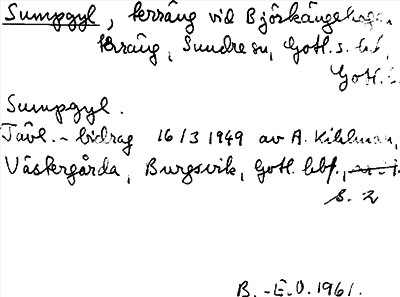 Sumpgyl, kerräng vid Björkängehagen
kerräng, Sundre sn, Gotl. s. hd,
Gotl.
Sumpgyl.
Tävl.-bidrag 16/3 1949 av A. Kihlman,
Västergårda, Burgsvik, Gotl. lbf.,
s. 2
B.-E.O. 1961.